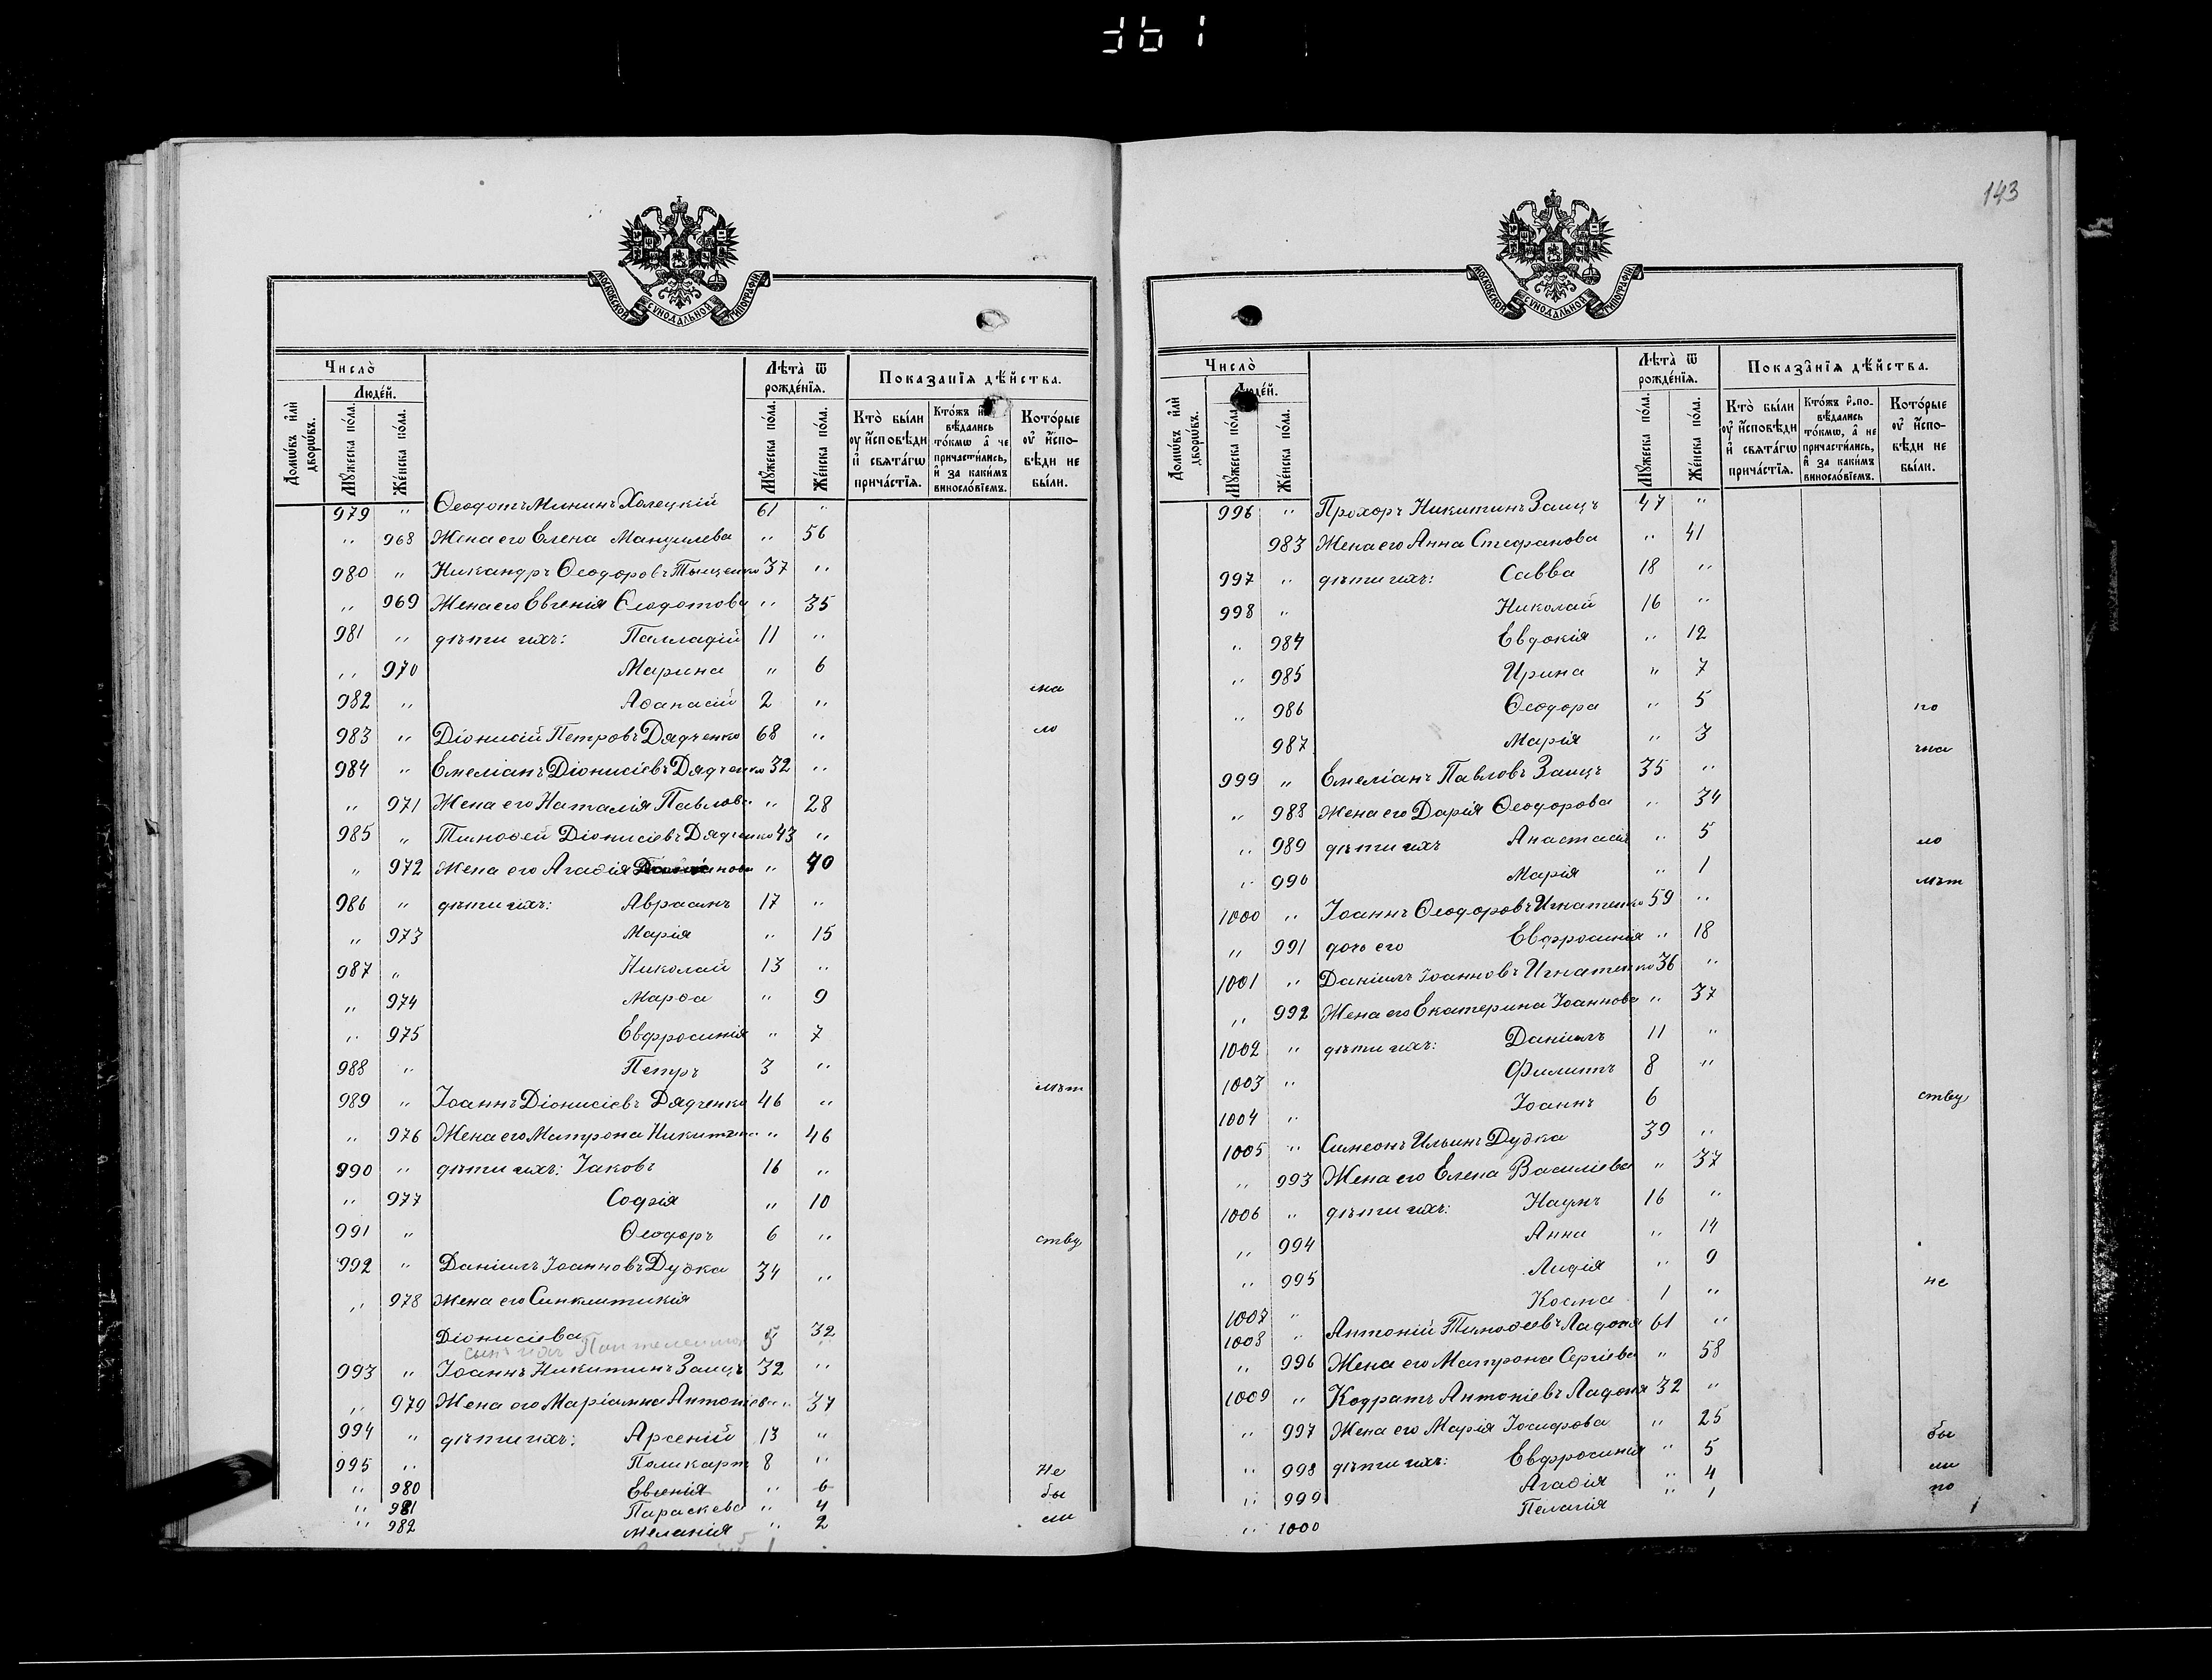 361
МОСКОВСКОЙ СУНОДАЛЬНОЙ ТИПОГРАФІИ
Число̀
Домѡ́въ и҆лѝ дворѡ́въ.
Люде́й.
Мꙋ́жеска по́ла.
Же́нска по́ла.
Лѣ́та ѿ рожде́нїя.
Мꙋ́жеска по́ла.
Же́нска по́ла.
Показа́нїя дѣ́йства.
Кто̀ бы́ли оу҆ и҆́сповѣди и҆ свята́гѡ прича́стїя.
Кто́жъ и҆ вѣ́дались то́кмѡ а҆ не причасти́лись, и҆ за каки́мъ виносло́вїемъ.
Кото́рые оу҆ и҆́спо- вѣди не бы́ли.
979 " Ѳеодотъ Мининъ Холецкій 61 "
" 968 Жена его Елена Мануилева " 56
980 " Никандръ Ѳеодоровъ Тыщенко 37 "
" 969 Жена его Евгенія Ѳеодотова " 35
981 " дѣти ихъ: Палладій 11 "
" 970 Марина " 6
982 " Аѳанасій 2 " ма
983 " Діонисій Петровъ Дядченко 68 " ло
984 " Емеліанъ Діонисіевъ Дядченко 32 "
" 971 Жена его Наталія Павлова " 28
985 " Тимоѳей Діонисіевъ Дядченко 43 "
" 972 Жена его Агаѳія " 40
986 " дѣти ихъ: Авраамъ 17 "
" 973 Марія " 15
987 " Николай 13 "
" 974 Марѳа " 9
" 975 Евфросинія " 7
988 " Петръ 3 "
989 " Іоаннъ Діонисіевъ Дядченко 46 " лѣт
" 976 Жена его Матрона Никитина " 46
990 " дѣти ихъ: Іаковъ 16 "
" 977 Софія " 10
991 " Ѳеодоръ 6 " ству
992 " Даніилъ Іоанновъ Дудка 34 "
" 978 Жена его Синклитикія
Діонисіева 32
сынъ ихъ Пантелеимон 5 "
993 " Іоаннъ Никитинъ Заицъ 32 "
" 979 Жена его Маріамна Антоніева " 37
994 " дѣти ихъ: Арсеній 13 "
995 " Поликарп 8 "
" 980 Евгенія " 6 Не
" 981 Параскева " 4 бы
" 982 Меланія " 2 ли
143
МОСКОВСКОЙ СУНОДАЛЬНОЙ ТИПОГРАФІИ
Число̀
Домѡ́въ и҆лѝ дворѡ́въ.
Люде́й.
Мꙋ́жеска по́ла.
Же́нска по́ла.
Лѣ́та ѿ рожде́нїя.
Мꙋ́жеска по́ла.
Же́нска по́ла.
Показа́нїя дѣ́йства.
Кто̀ бы́ли оу҆ и҆́сповѣди и҆ свята́гѡ прича́стїя.
Кто́жъ и҆спо- вѣ́дались то́кмѡ, а҆ не причасти́лись, и҆ за каки́мъ виносло́вїемъ.
Кото́рые оу҆ и҆́спо- вѣди не бы́ли.
996 " Прохоръ Никитинъ Заицъ 47 "
983 Жена его Анна Стефанова " 41
997 " дѣти ихъ: Савва 18 "
998 " Николай 16 "
" 984 Евдокія " 12
" 985 Ирина " 7
" 986 Ѳеодора " 5 по
987 Марія " 3 чна
999 " Емеліанъ Павловъ Заицъ 35 "
" 988 Жена его Дарія Ѳеодорова " 34
" 989 дѣти ихъ Анастасія " 5 ло
" 990 Марія " 1 лѣт
1000 " Іоаннъ Ѳеодоровъ Игнатенко 59 "
" 991 дочь его Евфросинія " 18
1001 " Даніилъ Іоанновъ Игнатенко 36 "
" 992 Жена его Екатерина Іоаннова " 37
1002 " дѣти ихъ: Даніилъ 11 "
1003 " Филиппъ 8 "
1004 " Іоаннъ 6 ству
1005 " Симеонъ Ильинъ Дудка 39 "
" 993 Жена его Елена Василіева " 37
1006 " дѣти ихъ: Наумъ 16 "
" 994 Анна " 14
" 995 Лидія " 9
1007 " Косма 1 " не
1008 " Антоній Тимоѳеевъ Ладоня 61 "
" 996 Жена его Матрона Сергіева " 58
1009 " Кодратъ Антоніевъ Ладоня 32 "
" 997 Жена его Марія Іосифова " 25
" 998 дѣти ихъ: Евфросинія " 5 бы
" 999 Агаѳія " 4 ли
" 1000 Пелагія " 1 по